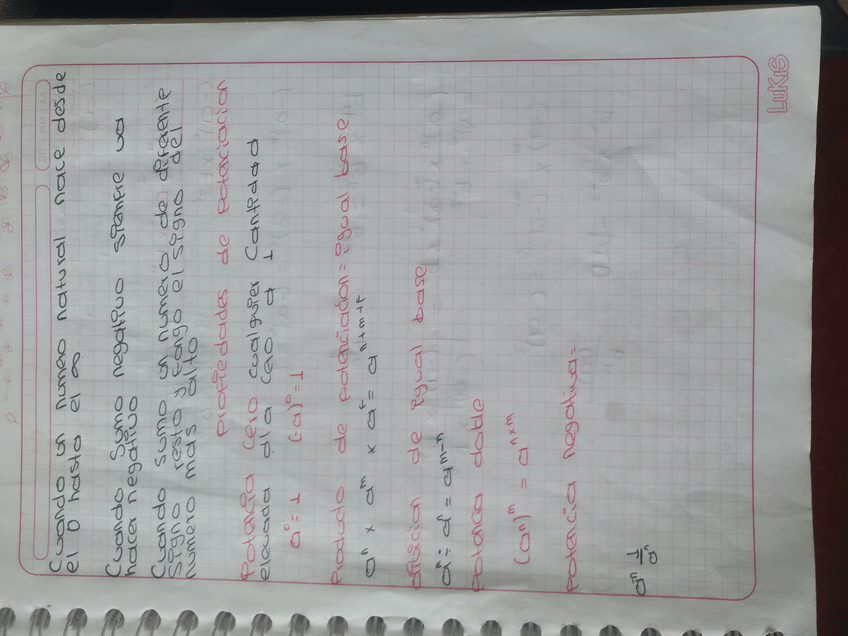 Cuando un numero natural nace desde
el 0 hasta el ∞
Cuando sumo negativo siempre va
hacer negativo
Cuando sumo un numero de diferente
signo resto y tengo el signo del
numero mas alto
Profiedades de Potenciacion
Potencia Cero cualquier cantidad
elevada al a cero a 1
a⁰ = 1 (-a)⁰ = 1
Producto de potenciacion = igual base
aⁿ × aᵐ × aᶠ = aⁿ⁺ᵐ⁺ᶠ
division de igual base
= aᵐ⁻ⁿ
Potencia doble
(aⁿ)ᵐ = aⁿˣᵐ
Potencia negativa =
LUKIS